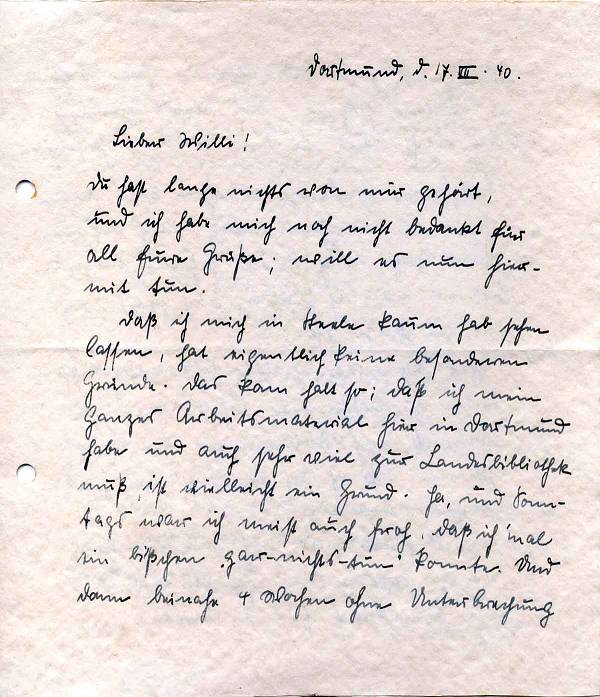 Dortmund, d. 17. III. 40.
Lieber Willi!
Du hast lange nichts von mir gehört,
und ich habe mich noch nicht bedankt für
all Eure Grüße; will es nun hier-
mit tun.
Daß ich mich in Steele kaum hab sehen
lassen, hat eigentlich keine besonderen
Gründe. Das kam halt so; daß ich mein
ganzes Arbeitsmaterial hier in Dortmund
habe und auch sehr viel zur Landesbibliothek
muß, ist vielleicht ein Grund. Ja, und Sonn-
tags war ich meist auch froh, daß ich 'mal
ein bißchen „gar-nichts-tun“ konnte. Und
dann beinahe 4 Wochen ohne Unterbrechung